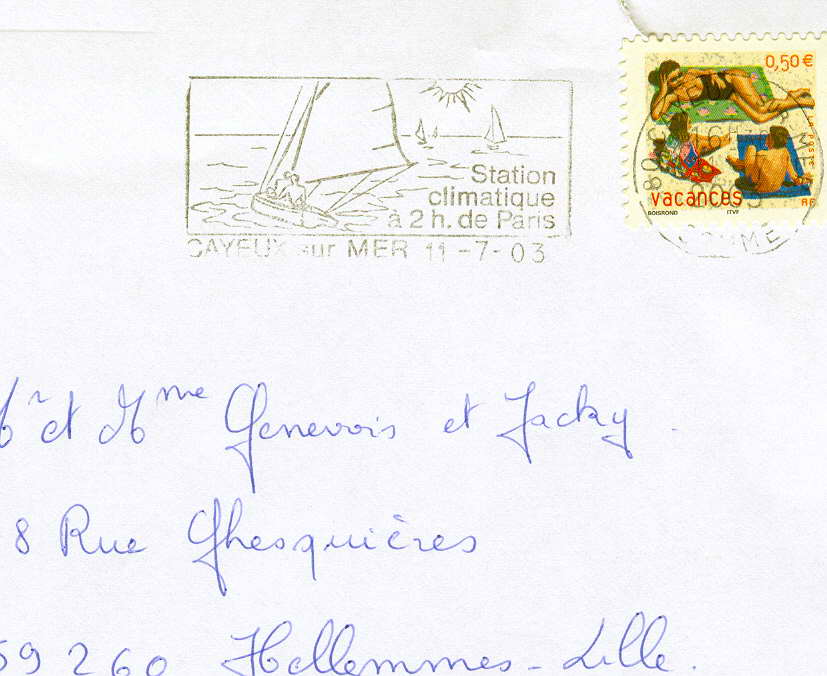 0,50 €
Station
climatique
à 2 h. de Paris
CAYEUX sur MER 11-7-03
vacances
RF
BOISROND ITVF
Mr et Mme Genevois et Jacky.
8 Rue Ghesquières
59 260 Hellemmes-Lille.